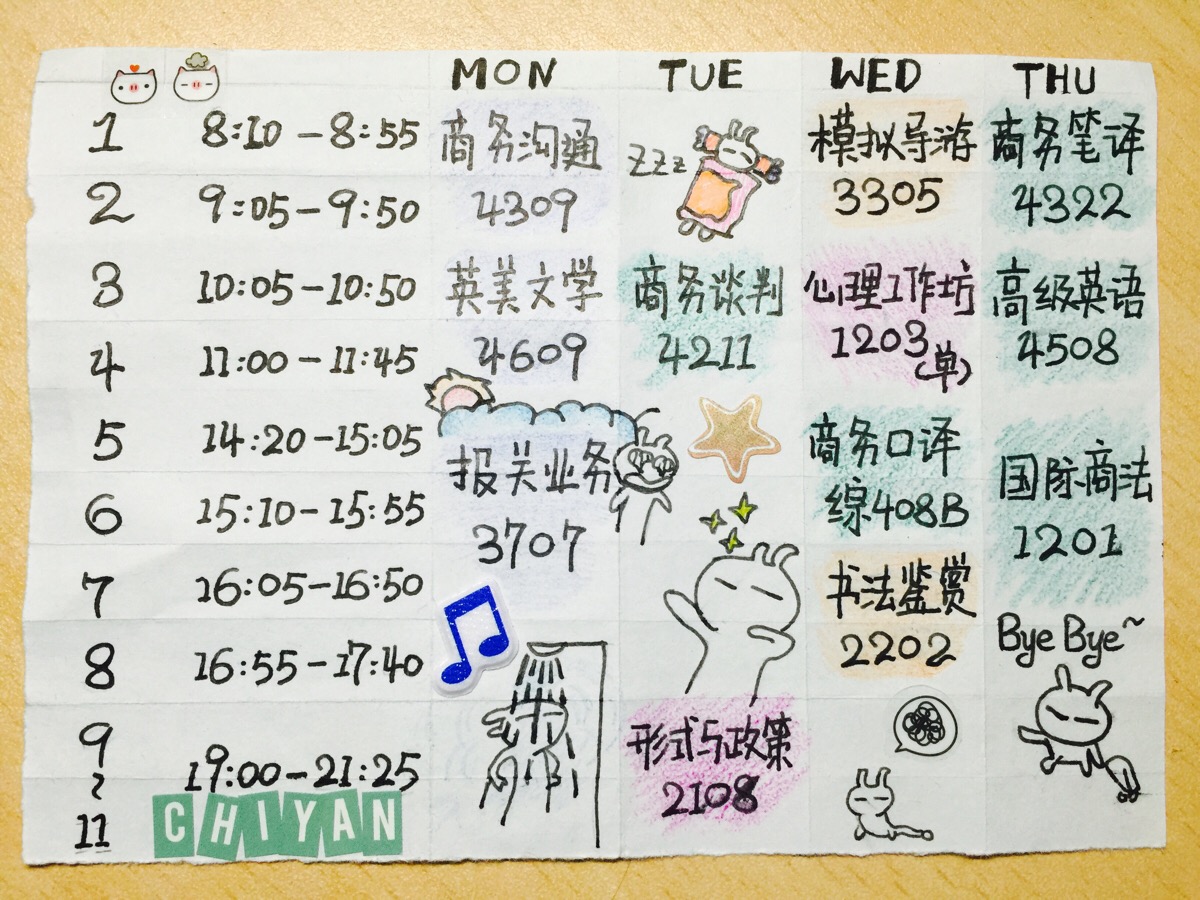 MON TUE WED THU
1 8:10-8:55 商务沟通 模拟导游 商务笔译
zzz
2 9:05-9:50 4309 3305 4322
3 10:05-10:50 英美文学 商务谈判 心理工作坊 高级英语
4 11:00-11:45 4609 4211 1203(单) 4508
5 14:20-15:05 报关业务 商务口译 国际商法
6 15:10-15:55 3707 综408B 1201
7 16:05-16:50 书法鉴赏
Bye Bye~
8 16:55-17:40 2202
9~11 19:00-21:25 形式与政策
2108
CHIYAN